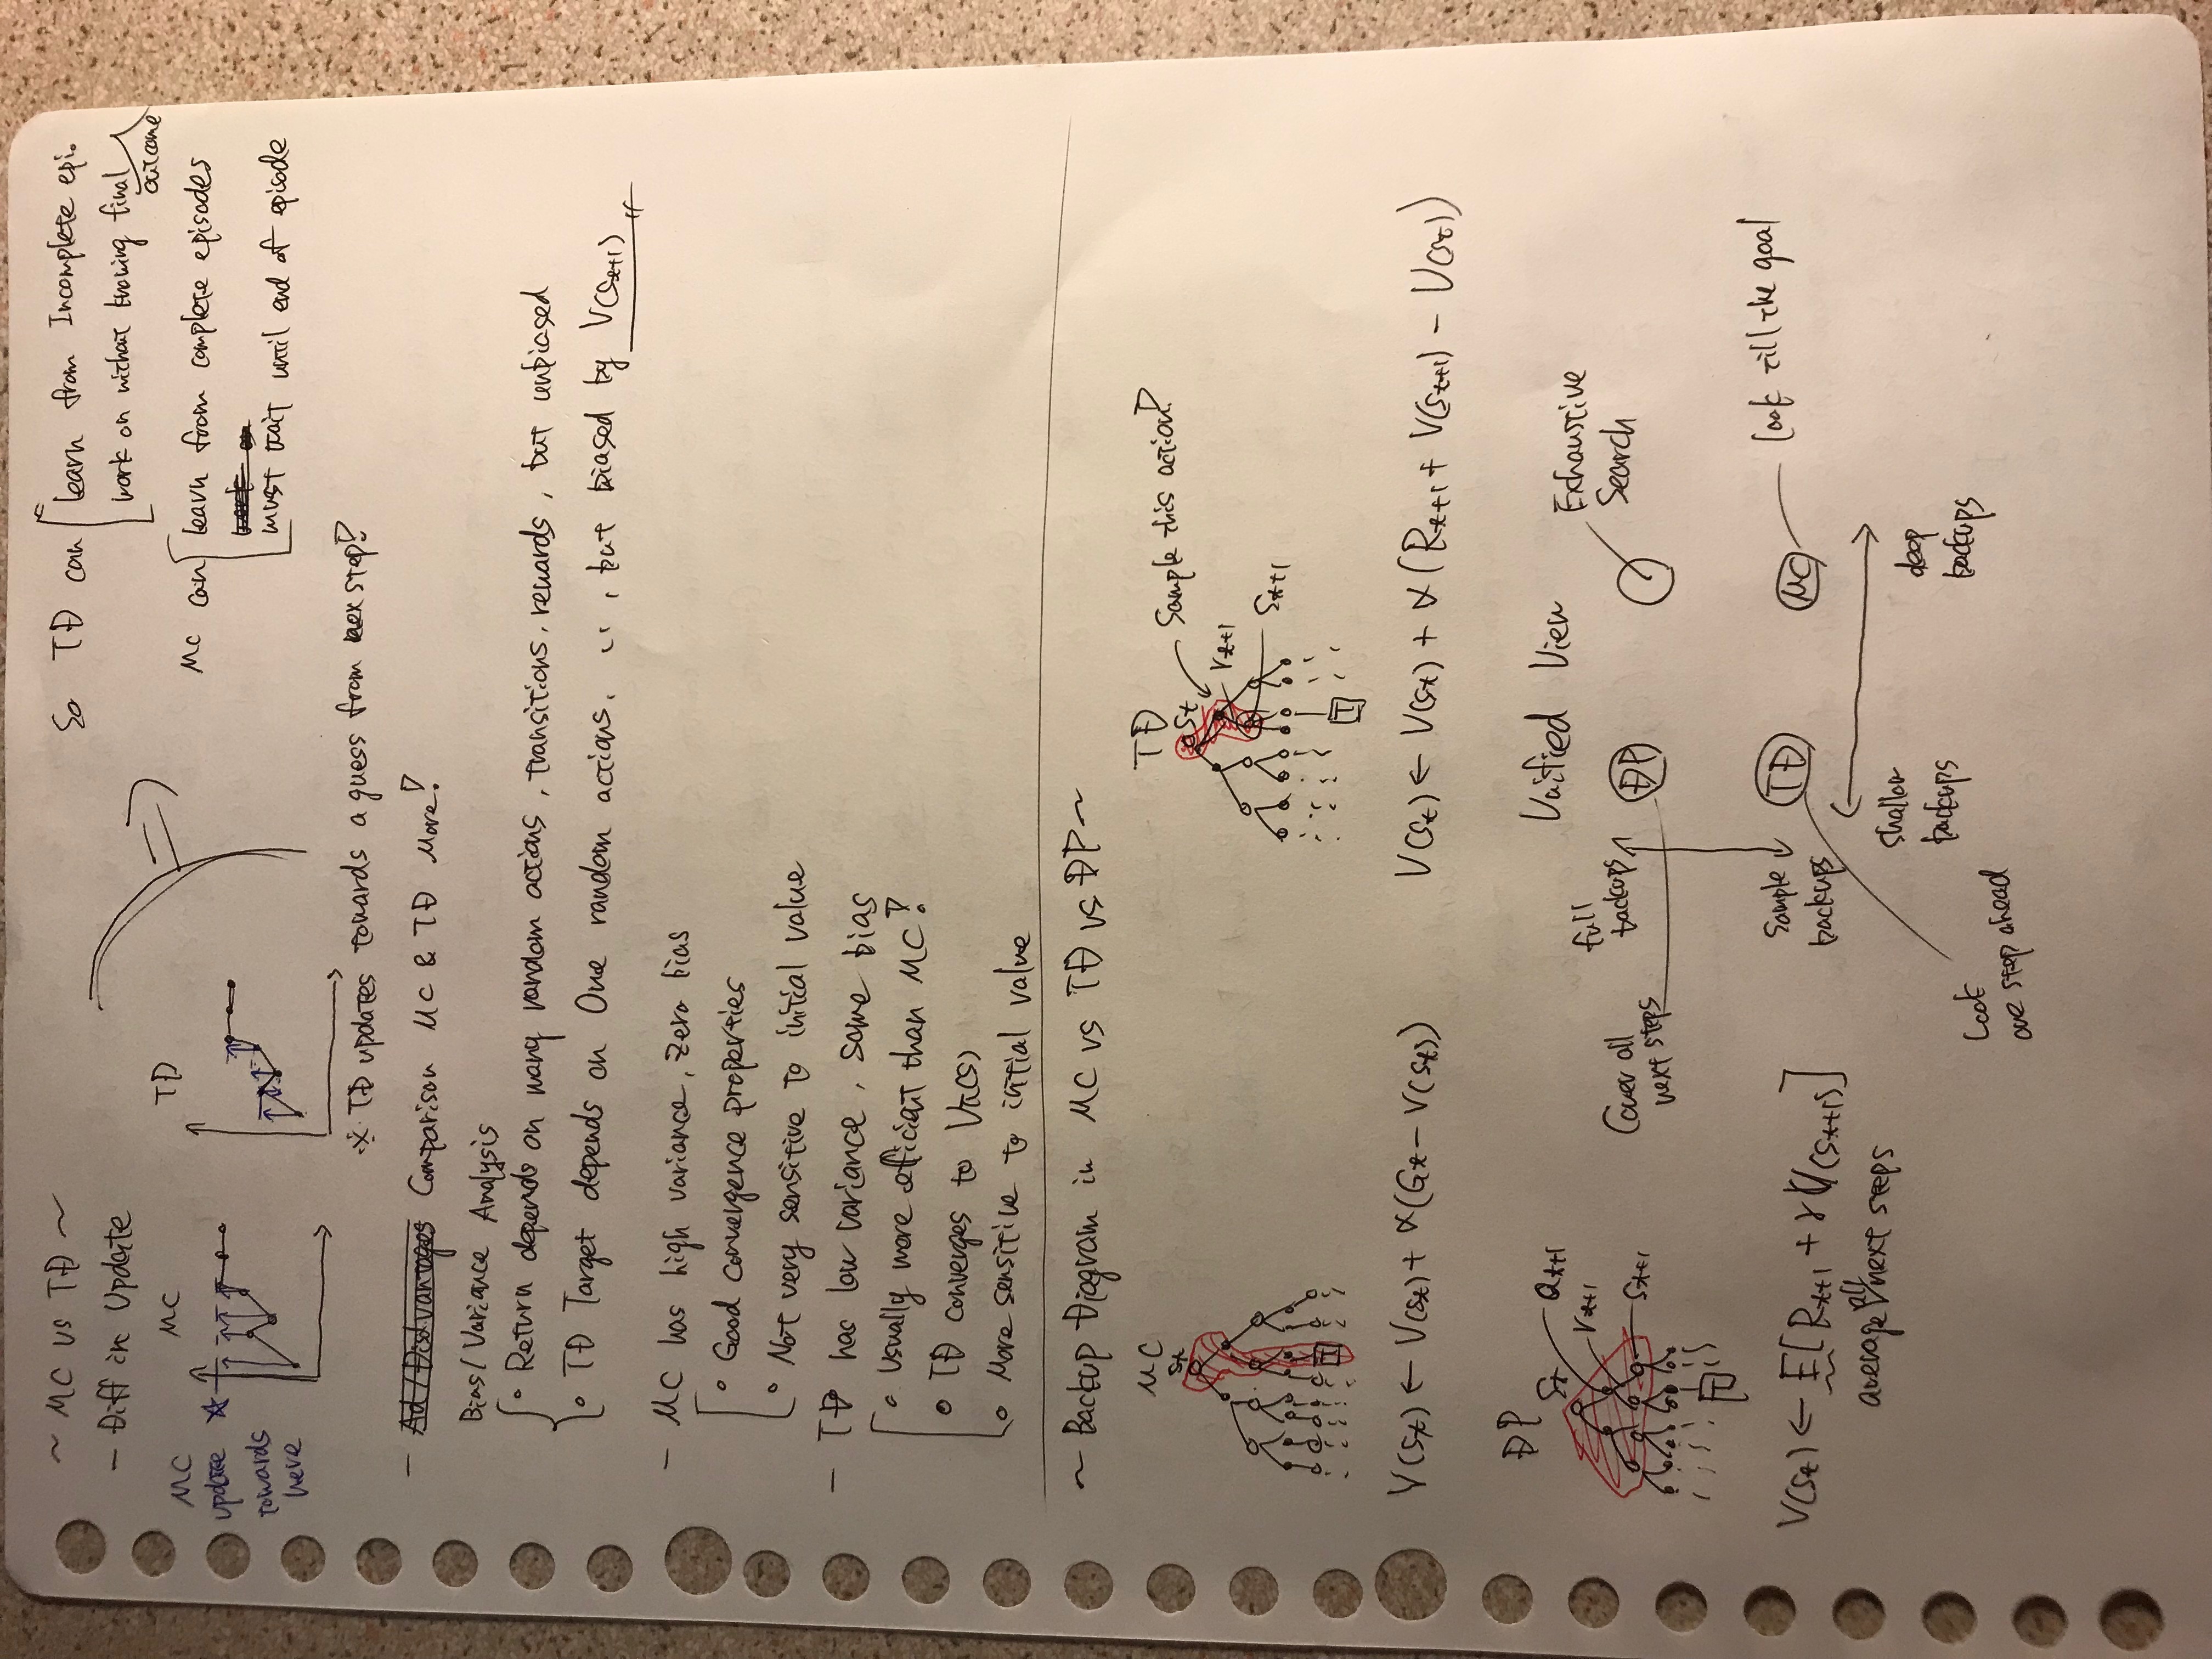 ~ MC vs TD ~
- Diff in Update
MC update towards here
MC
TD
So TD can learn from Incomplete epi.
work on without knowing final outcome
MC can learn from complete episodes
work on
must wait until end of episode
※ TD updates towards a guess from nex step!
- Ad/Disadvantages Comparison MC & TD More!
Bias/Variance Analysis
• Return depends on many random actions, transitions, rewards, but unbiased
• TD Target depends on One random actions, ‥, but biased by V(St+1)
- MC has high variance, zero bias
• Good convergence properties
• Not very sensitive to initial value
- TD has low variance, some bias
• Usually more efficient than MC!
• TD converges to Vπ(s)
• More sensitive to initial value
~ Backup Diagram in MC vs TD vs DP ~
MC
St
T
TD
St
Sample this action!
rt+1
St+1
T
V(St) ← V(St) + α(Gt - V(St))
V(St) ← V(St) + α(Rt+1 + V(St+1) - V(St))
DP
St
at+1
rt+1
St+1
T
V(St) ← E[Rt+1 + γV(St+1)]
average all next steps
Unified View
full backups
Cover all next steps
DP
Exhaustive Search
Sample backups
TD
MC
look till the goal
shallow backups
deep backups
Look one step ahead